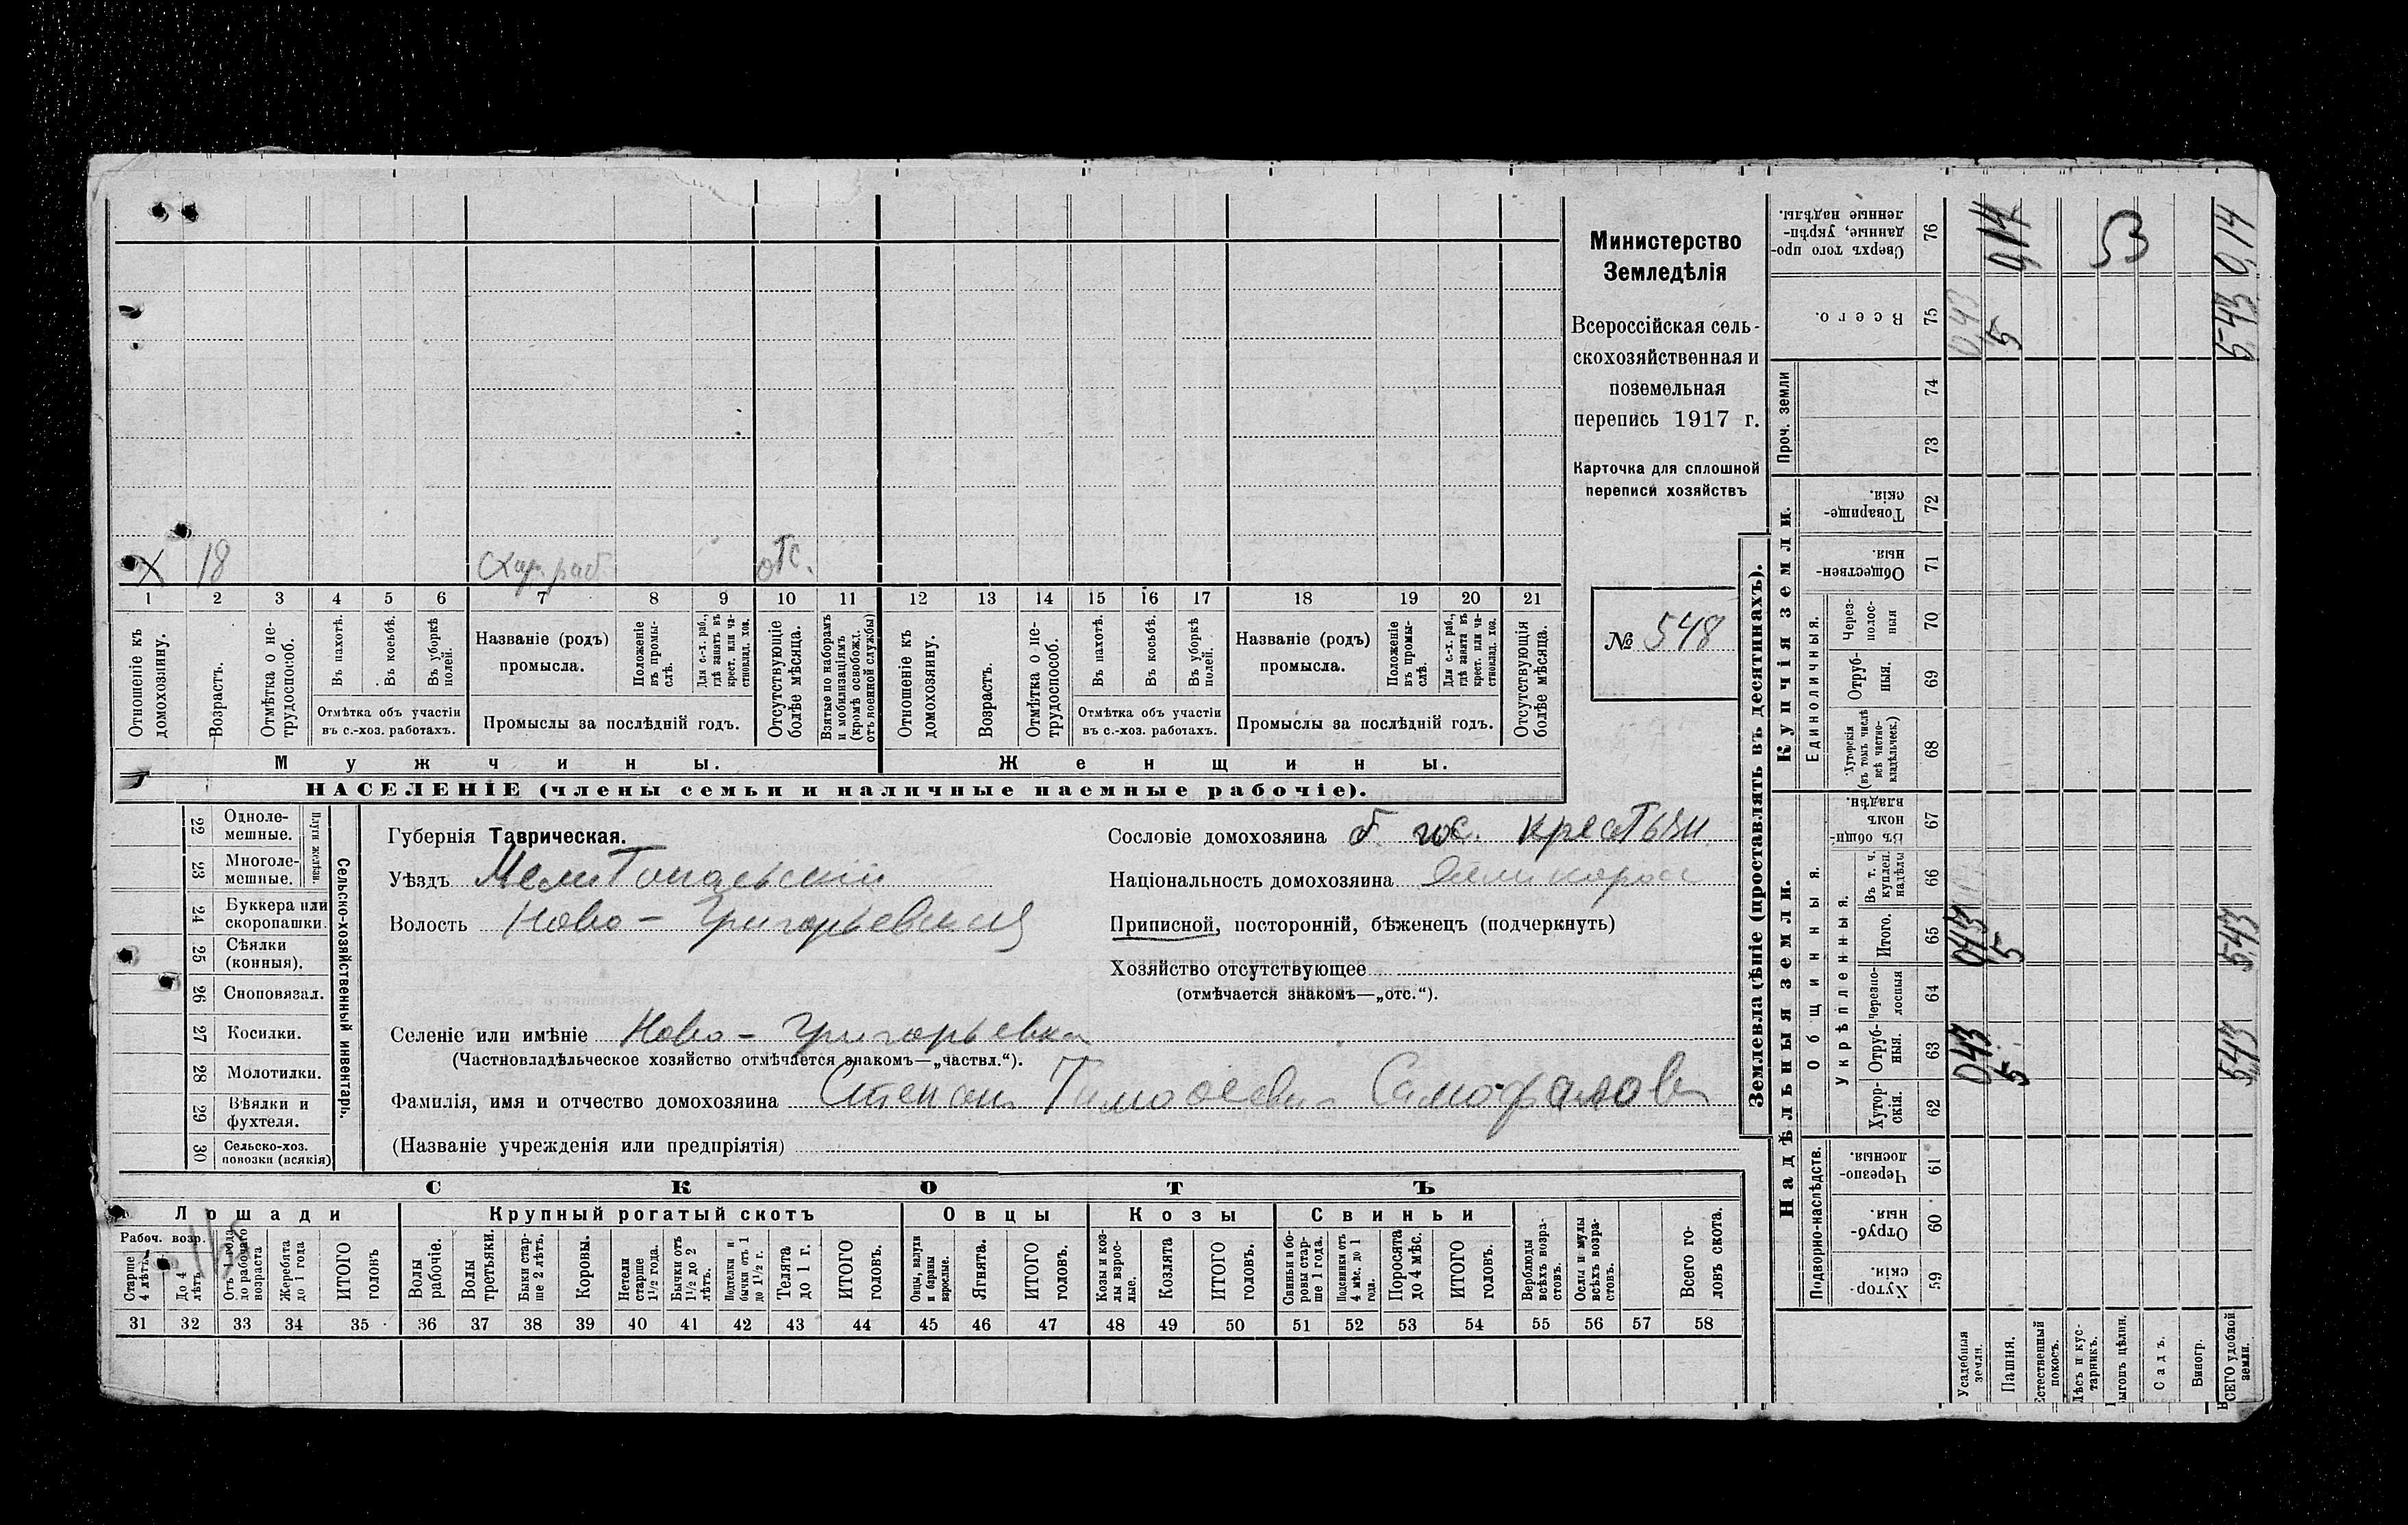 Министерство
Земледѣлія
Всероссійская сель-
скохозяйственная и
поземельная
перепись 1917 г.
Карточка для сплошной
переписи хозяйствъ
№ 548
х 18 отс.
1 2 3 4 5 6 7 8 9 10 11 12 13 14 15 16 17 18 19 20 21
Отношеніе къ домохозяину.
Возрастъ.
Отмѣтка о не-трудоспособ.
Въ пахотѣ.
Въ косьбѣ.
Въ уборкѣ полей.
Отмѣтка объ участіи
въ с.-хоз. работахъ.
Названіе (родъ)
промысла.
Положеніе въ промы-слѣ.
Для с.-х. раб., гдѣ занятъ въ крест. или ча-стновлад. хоз.
Промыслы за послѣдній годъ.
Отсутствующіе болѣе мѣсяца.
Взятые по наборамъ и мобилизаціямъ (кромѣ освобожд. отъ военной службы)
Отношеніе къ домохозяину.
Возрастъ.
Отмѣтка о не-трудоспособ.
Въ пахотѣ.
Въ косьбѣ.
Въ уборкѣ полей.
Отмѣтка объ участіи
въ с.-хоз. работахъ.
Названіе (родъ)
промысла.
Положеніе въ промы-слѣ.
Для с.-х. раб., гдѣ занята въ крест. или ча-стновлад. хоз.
Промыслы за послѣдній годъ.
Отсутствующія болѣе мѣсяца.
Мужчины. Женщины.
НАСЕЛЕНІЕ (члены семьи и наличные наемные рабочіе).
22 Одноле-мешные.
23 Многоле-мешные.
Плуги желѣзн.
24 Буккера или скоропашки.
25 Сѣялки (конныя).
26 Сноповязал.
27 Косилки.
28 Молотилки.
29 Вѣялки и фухтеля.
30 Сельско-хоз. повозки (всякія)
Сельско-хозяйственный инвентарь.
Губернія Таврическая.
Уѣздъ Мелитопольскій
Волость Ново-Григорьевская
Селеніе или имѣніе Ново-Григорьевка
(Частновладѣльческое хозяйство отмѣчается знакомъ—„частвл.“).
Фамилія, имя и отчество домохозяина Степанъ Тимофеевичъ Самофаловъ
(Названіе учрежденія или предпріятія)
Сословіе домохозяина б. гос. крестьян.
Національность домохозяина Великоросс
Приписной, посторонній, бѣженецъ (подчеркнуть)
Хозяйство отсутствующее
(отмѣчается знакомъ—„отс.“).
СКОТЪ
Лошади Крупный рогатый скотъ Овцы Козы Свиньи
Рабоч. возр.
Старше 4 лѣтъ.
До 4 лѣтъ
Отъ 1 года до рабочаго возраста
Жеребята до 1 года
ИТОГО головъ
Волы рабочіе.
Волы третьяки.
Быки стар-ше 2 лѣтъ.
Коровы.
Нетели старше 1½ года.
Бычки отъ 1½ до 2 лѣтъ.
Подтелки и бычки отъ 1 до 1½ г.
Телята до 1 г.
ИТОГО головъ.
Овцы, валухи и бараны взрослые.
Ягнята.
ИТОГО головъ.
Козы и коз-лы взрос-лые.
Козлята
ИТОГО головъ.
Свиньи и бо-ровы стар-ше 1 года.
Подсвинки отъ 4 мѣс. до 1 года.
Поросята до 4 мѣс.
ИТОГО головъ.
Верблюды всѣхъ возра-стовъ.
Ослы и мулы всѣхъ возра-стовъ.
Всего го-ловъ скота.
31 32 33 34 35 36 37 38 39 40 41 42 43 44 45 46 47 48 49 50 51 52 53 54 55 56 57 58
Землевладѣніе (проставлять въ десятинахъ).
Надѣльныя земли. Купчія земли. Проч. земли
Подворно-наслѣдств.
Общинныя.
Укрѣпленныя.
Единоличныя.
Сверхъ того про-данные, укрѣп-ленные надѣлы. 76 0,14 53 0,14
Всего. 75 0,43 5 5-43
74
73
Товарище-скія. 72
Обществен-ныя. 71
Через-полос-ныя 70
Отруб-ныя. 69
Хуторскія (въ томъ числѣ всѣ частно-владѣльческ.) 68
Въ общи-номъ владѣн. 67
Въ т. ч. куплен. надѣлы 66
Итого. 65 043 5 5,43
черезпо-лосныя 64
Отруб-ныя. 63 043 5 543
Хутор-скія. 62
Черезпо-лосныя. 61
Отруб-ныя. 60
Хутор-скія. 59
Усадебныя земли.
Пашня.
Естественный покосъ.
Лѣсъ и кус-тарникъ.
Выгонъ цѣлин.
Садъ.
Виногр.
ВСЕГО удобной земли.